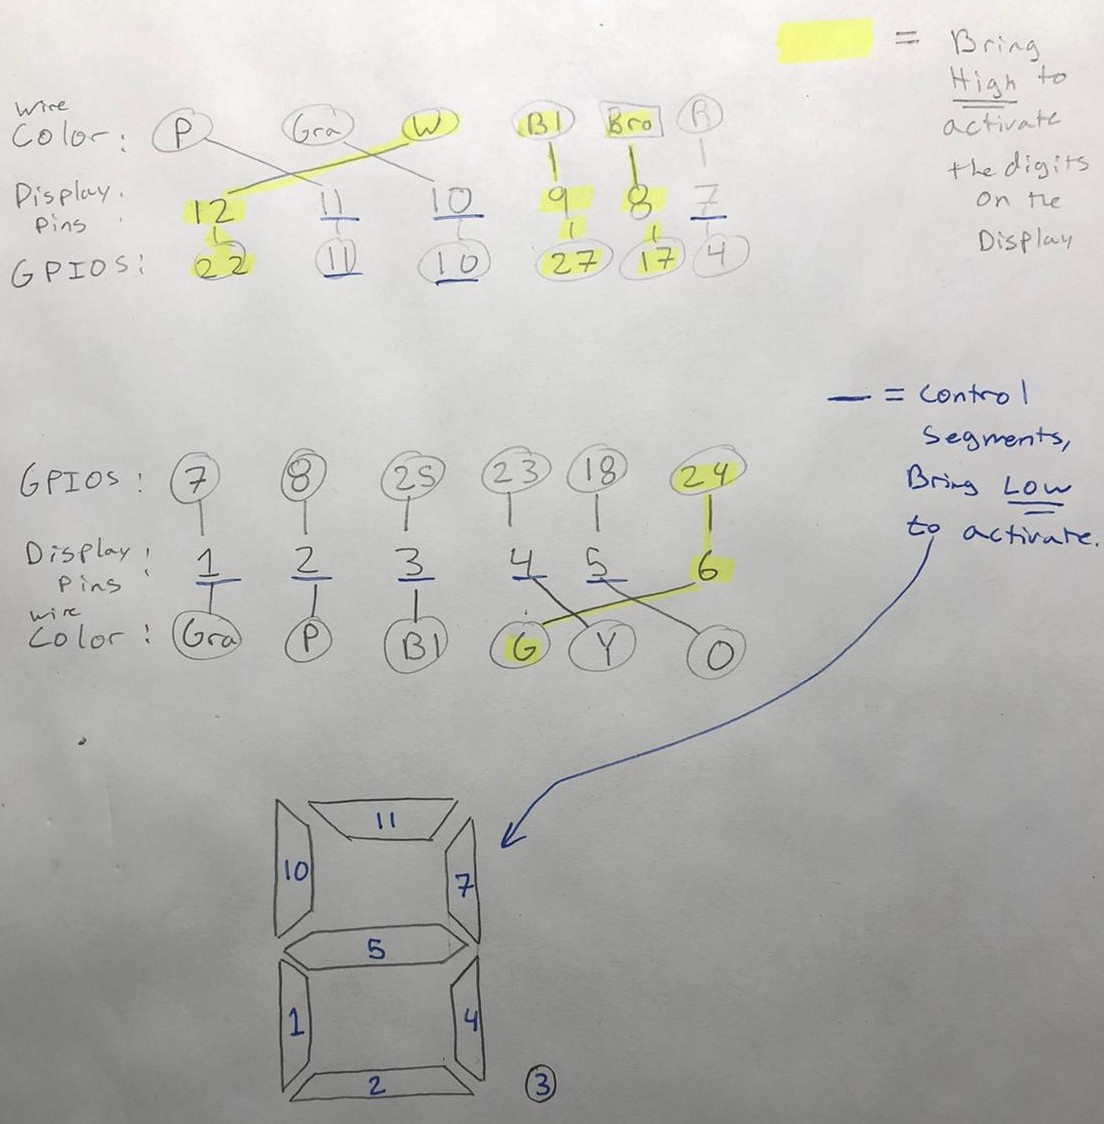 = Bring
High to
activate
the digits
on the
Display
wire
Color: P Gra W Bl Bro R
Display
Pins 12 11 10 9 8 7
GPIOS: 22 11 10 27 17 4
— = Control
Segments,
Bring Low
to activate.
GPIOS: 7 8 25 23 18 24
Display:
Pins 1 2 3 4 5 6
wire
Color: Gra P Bl G Y O
11
10
7
5
1
4
2
3